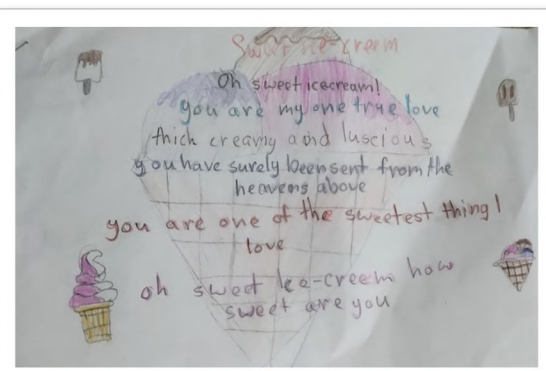 Sweet ice-creem
Oh sweet icecream!
you are my one true love
thick creamy and luscious
you have surely been sent from the
heavens above
you are one of the sweetest thing I
love
oh sweet Ice-creem how
sweet are you